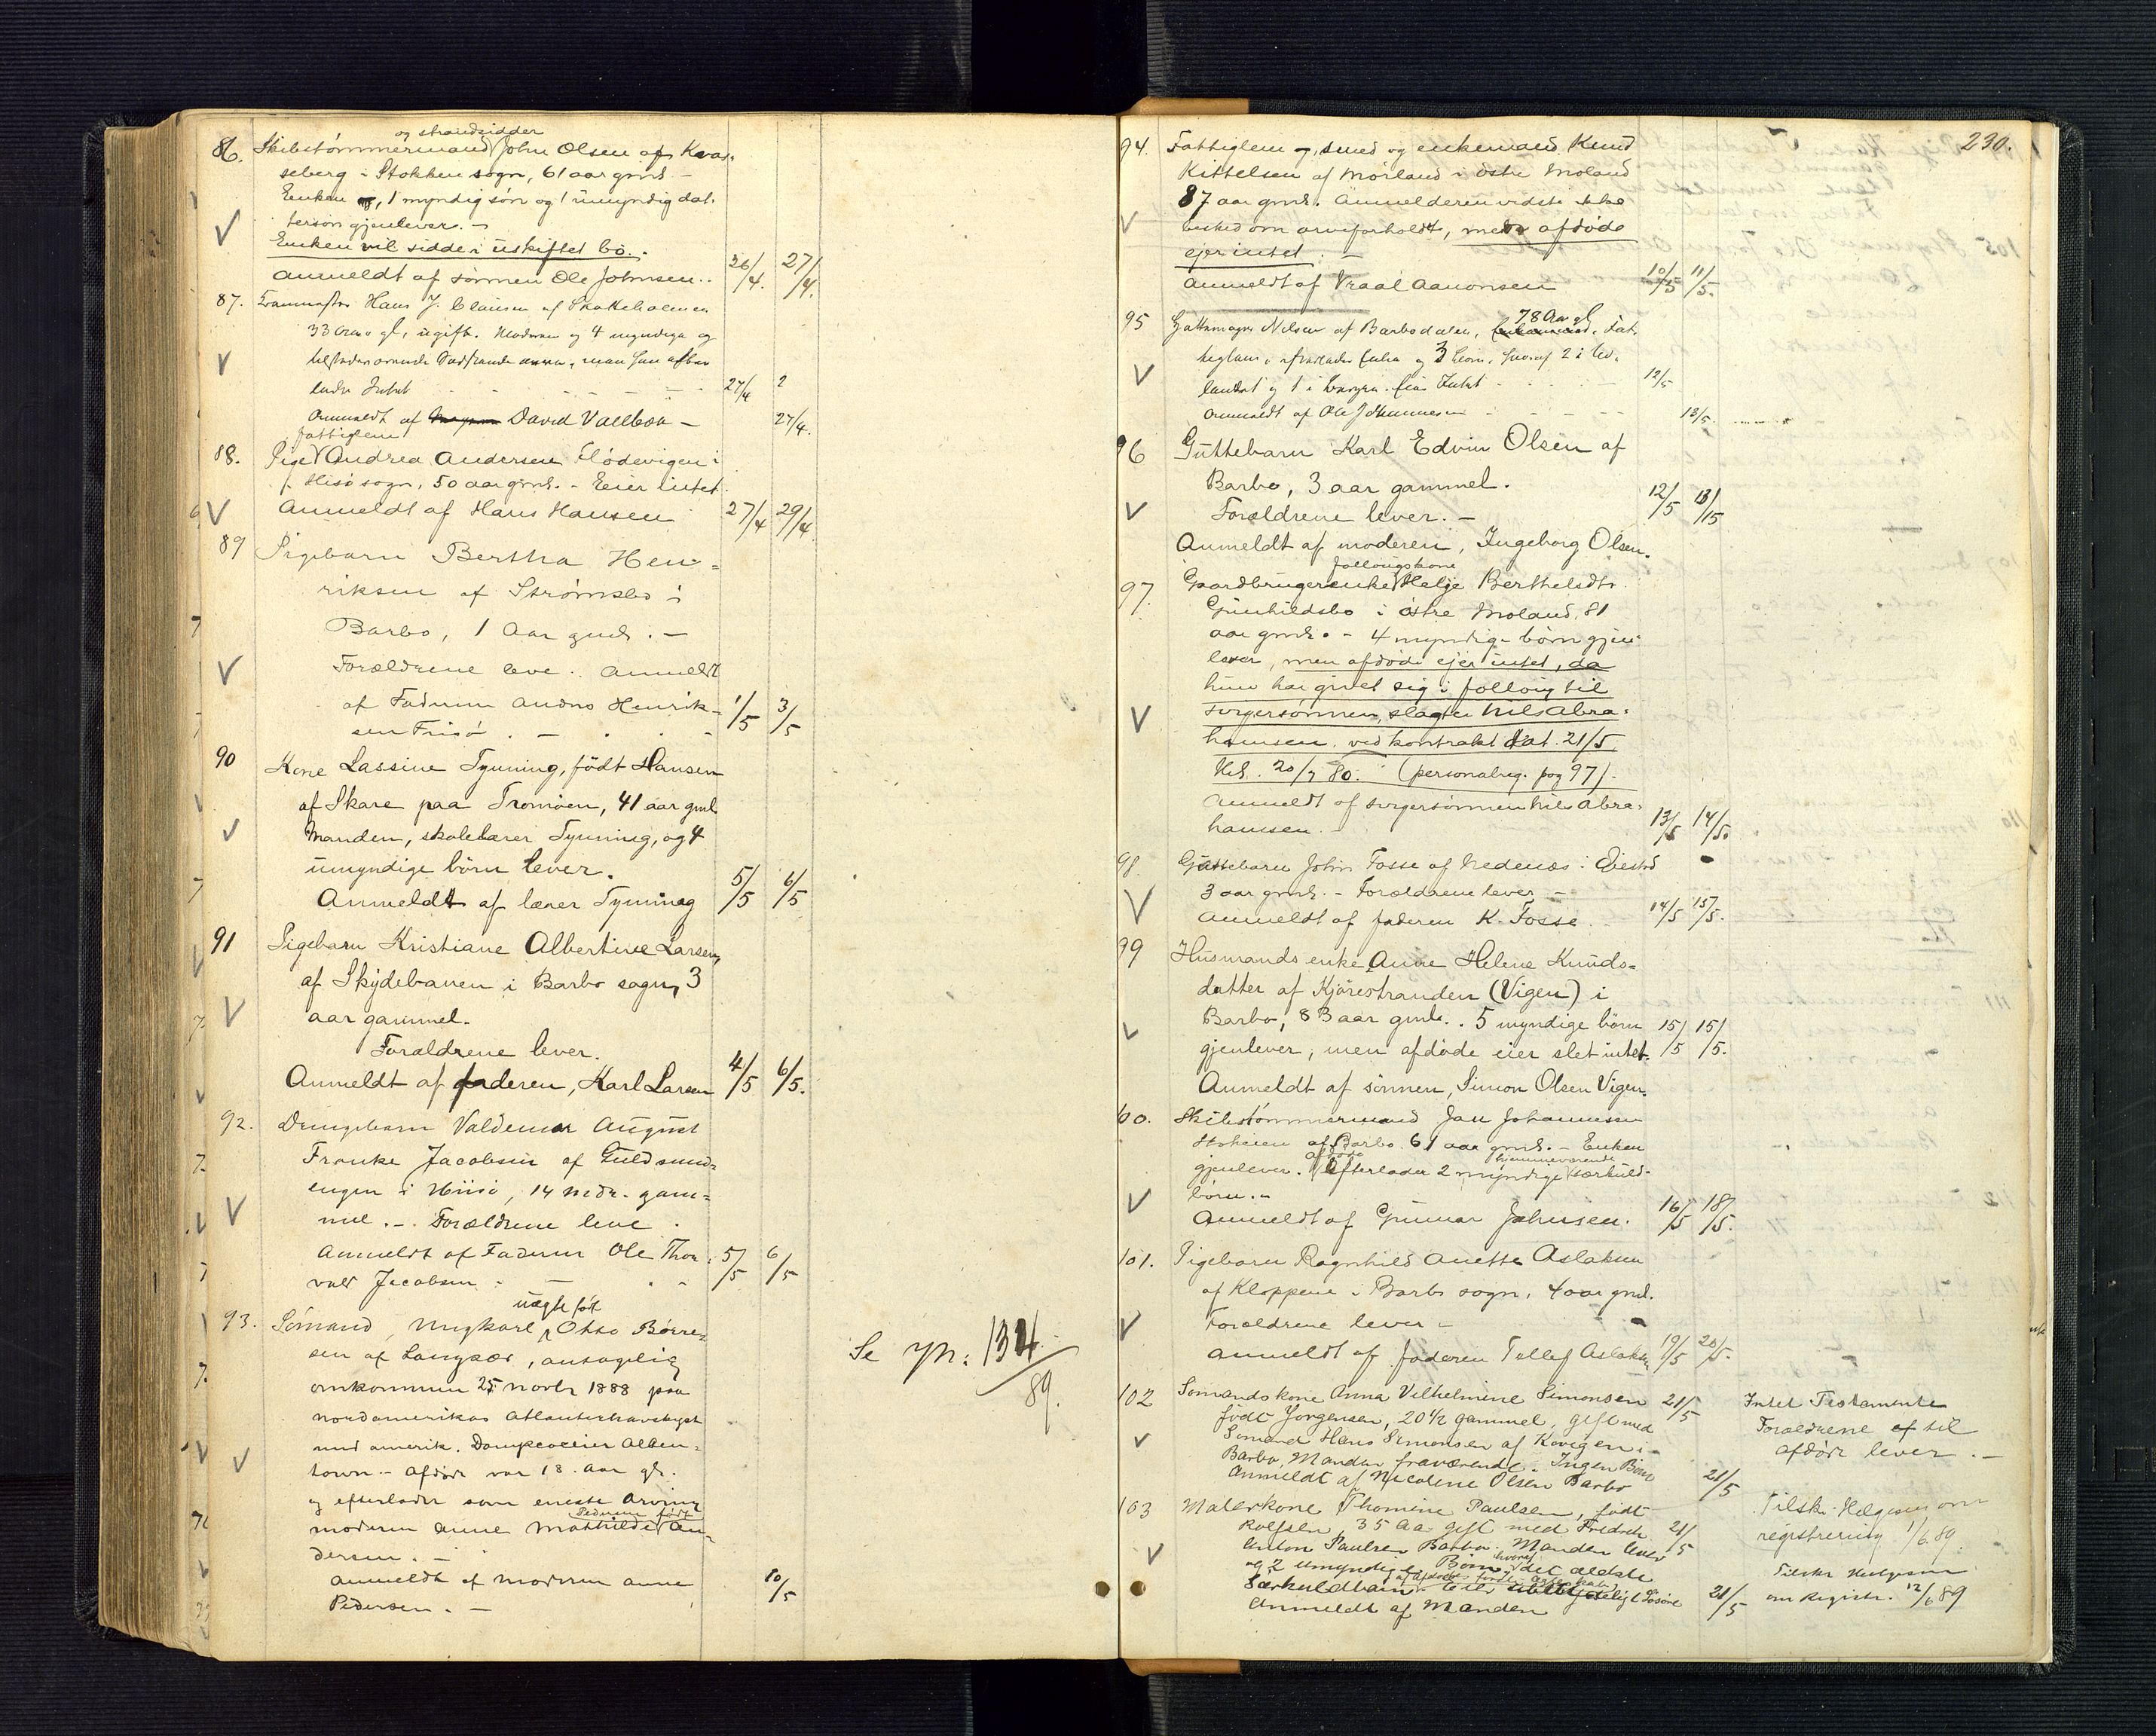 og strandsidder
86. Skibstömmermand John Olsen af Kvas-
seberg i Stokken sogn, 61 aar gml. -
Enken, 1 myndig sön og 1 umyndig dat-
tersön gjenlever. -
Enken vil sidde i uskiftet bo.
Anmeldt af sönnen Ole Johnsen. 26/4. 27/4.
87. Hans J. Clausen af Skatteholmen
33 Aar gl, ugift. Moderen og 4 myndige og
tilstedeværende Sødskende, men han efter-
lader Intet 27/4 2
Anmeldt af David Vallboa - 27/4.
fattiglem
88. Pige Andrea Andersen Flödevigen i
Hisö sogn, 50 aar gml. - Eier intet.
Anmeldt af Hans Hansen 27/4 29/4.
89 Pigebarn Bertha Hen-
riksen af Strömsbo i
Barbo, 1 Aar gml. -
Forældrene leve. Anmeldt
af Faderen Andr Henrik-
sen Frisö. - 1/5 3/5
90 Kone Lassine Tynning, födt Hansen
af Skare paa Tromöen, 41 aar gml
Manden, skolelærer Tynning, og 4
umyndige börn lever.
Anmeldt af lærer Tynning 5/5 6/5
91 Pigebarn Kristiane Albertine Larsen,
af Skydebanen i Barbo sogn, 3
aar gammel.
Forældrene lever.
Anmeldt af faderen, Karl Larsen 4/5 6/5.
92. Drengebarn Valdemar August
Franke Jacobsen af Guldsmed-
engen i Hiisö, 14 Mdr. gam-
mel. - Forældrene leve.
Anmeldt af Faderen Ole Thor-
vald Jacobsen - 5/5 6/5
uægte föt
93. Sömand, Ungkarl, Otto Börre-
sen af Langsæ, antagelig
omkommen 25 Novbr 1888 paa
nordamerikas Atlanterhavskyst
med amerik. Damp Allen-
town. - Afdöde var 18 Aar gl.
og efterlader som eneste Arving
Pedersen födt
moderen Anne Mathilde An-
dersen. -
Anmeldt af Moderen Anne
Pedersen. - 10/5
Se N: 134/89.
230.
94. Fattiglem og smed og enkemand Knud
Kittelsen af Mörland i östre Moland
87 aar gml. Anmelderen vidste ikke
besked om arveforholdt, men afdöde
ejer intet. -
Anmeldt af Vraal Aanonsen 10/5 11/5.
78 Aar gl
95 Nilsen af Barbodalen, Fat-
tiglem, efterlader Enke og 3 Börn, hvoraf 2 i Ud-
landet og 1 i Bergen. Eier Intet 12/5
Anmeldt af Ole Johannesen 13/5.
96 Guttebarn Karl Edvin Olsen af
Barbo, 3 aar gammel.
Forældrene lever. - 12/5 13/15
Anmeldt af moderen, Ingeborg Olsen.
follougskone
97. Gaardbrugerenke Helje Berthelsdtr.
Gunhildsbo i östre Moland, 81
aar gml. - 4 myndige börn gjen-
lever, men afdöde ejer intet, da
hun har givet sig i folloug til
svigersönnen, slagter Nils Abra-
hamsen ved kontrakt dat. 21/5
Thl. 20/7 80. (personalreg. pag 97).
Anmeldt af svigersönnen Nils Abra-
hamsen. - 13/5 14/5.
98. Guttebarn John Fosse af Nedenæs i Öiestad
3 aar gml. - Forældrene lever -
Anmeldt af faderen K. Fosse. 14/5 15/5.
99 Husmandsenke Anne Helene Knuds-
datter af Kjörestranden (Vigen) i
Barbo, 83 aar gml. . 5 myndige börn 15/5 15/5.
gjenlever, men afdöde eier slet intet.
Anmeldt af sönnen, Simon Olsen Vigen.
100. Skibstömmermand Jan Johannesen
Stoheien af Barbo 61 aar gml. - Enken
afdöde hjemmeværende
gjenlever. Efterlader 2 myndige særkuld-
börn. -
Anmeldt af Gunnar Johnsen. 16/5 18/5.
101. Pigebarn Ragnhild Anette Aslaksen
af Kloppene i Barbo sogn, 4 aar gml.
Forældrene lever -
Anmeldt af faderen Tellef Aslaksen 19/5 20/5.
102 Sömandskone Anna Vilhelmine Simonsen 21/5
födt Jörgensen, 20 1/2 gammel, gift med
Sömand Hans Simonsen af Kovigen i
Barbo, Manden fraværende. Ingen Börn
Anmeldt af Nicoline Olsen Barbo 21/5
Intet Testamente
Forældrene af til
afdöde lever. -
103 Malerkone Thomine Paulsen, födt
Rolfsen, 35 Aar gift med Fredrik 21/5
Anton Paulsen Barbo. Manden lever
og 2 umyndige Börn, hvoraf det ældste
Særkuldbarn
Anmeldt af Manden 21/5
Tilsk. Helgesen om
registrering 1/6 89.
Tilskr Helgesen
om Registr. 12/6 89